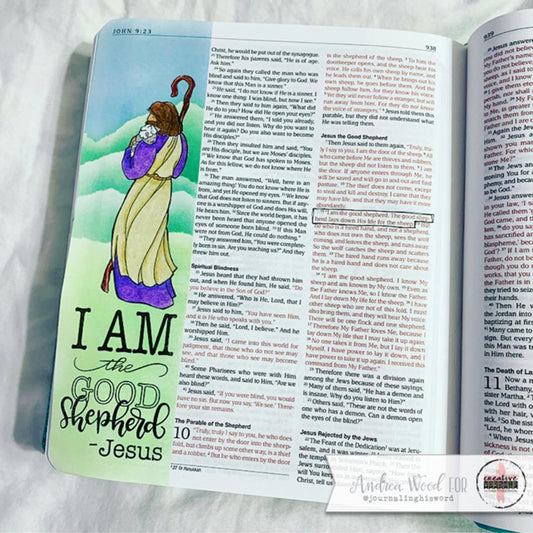 JOHN 9:23
938
I AM
the
GOOD
Shepherd
-Jesus
Christ, he would be put out of the synagogue.
23Therefore his parents said, "He is of age.
Ask him."
24So again they called the man who was
blind and said to him, "Give glory to God. We
know that this Man is a sinner."
25He said, "I do not know if He is a sinner. I
know one thing: I was blind, but now I see."
26Then they said to him again, "What did
He do to you? How did He open your eyes?"
27He answered them, "I told you already,
and you did not listen. Why do you want to
hear it again? Do you also want to become
His disciples?"
28Then they insulted him and said, "You
are His disciple, but we are Moses' disciples.
29We know that God has spoken to Moses.
As for this fellow, we do not know where He
is from."
30The man answered, "Well, here is an
amazing thing! You do not know where He is
from, and yet He opened my eyes. 31We know
that God does not listen to sinners. But if any-
one is a worshipper of God and does His will,
He hears him. 32Since the world began, it has
never been heard that anyone opened the
eyes of one born blind. 33If this Man
were not from God, He could do nothing."
34They answered him, "You were complete-
ly born in sin. Are you teaching us?" And they
threw him out.
Spiritual Blindness
35Jesus heard that they had thrown him
out, and when He found him, He said, "Do
you believe in the Son of God?"
36He answered, "Who is He, Lord, that I
may believe in Him?"
37Jesus said to him, "You have seen Him,
and it is He who speaks with you."
38Then he said, "Lord, I believe." And he
worshipped Him.
39Jesus said, "I came into this world for
judgment, that those who do not see may
see, and that those who see may become
blind."
40Some Pharisees who were with Him
heard these words, and said to Him, "Are we
also blind?"
41Jesus said, "If you were blind, you would
have no sin. But now you say, 'We see.' There-
fore your sin remains.
The Parable of the Sheepfold
10 "Truly, truly I say to you, he who does
not enter by the door into the sheep-
fold, but climbs up some other way, is a thief
and a robber. 2But he who enters by the door
22 Or Hanukkah
is the shepherd of the sheep. 3To him the
doorkeeper opens, and the sheep hear his
voice. He calls his own sheep by name, and
he leads them out. 4When he brings out his
own sheep, he goes before them. And the
sheep follow him, for they know his voice.
5Yet they will never follow a stranger, but will
run away from him. For they do not know
the voice of strangers." 6Jesus told them this
parable, but they did not understand what
He was telling them.
Jesus the Good Shepherd
7Then Jesus said to them again, "Truly, tru-
ly I say to you, I am the door of the sheep. 8All
who came before Me are thieves and robbers,
but the sheep did not listen to them. 9I am
the door. If anyone enters through Me, he
will be saved and will go in and out and find
pasture. 10The thief does not come, except
to steal and kill and destroy. I came that they
may have life, and that they may have it more
abundantly.
11"I am the good shepherd. The good shep-
herd lays down His life for the sheep. 12But
he who is a hired hand, and not a shepherd,
who does not own the sheep, sees the wolf
coming, and leaves the sheep, and runs away.
So the wolf catches the sheep and scatters
them. 13The hired hand runs away because
he is a hired hand and does not care about
the sheep.
14"I am the good shepherd. I know My
sheep and am known by My own. 15Even as
the Father knows Me, so I know the Father.
And I lay down My life for the sheep. 16I have
other sheep who are not of this fold. I must
also bring them, and they will hear My voice.
There will be one flock and one shepherd.
17Therefore My Father loves Me, because I
lay down My life that I may take it up again.
18No one takes it from Me, but I lay it down
Myself. I have power to lay it down, and I
have power to take it up again. I received this
command from My Father."
19Therefore there was a division again
among the Jews because of these sayings.
20Many of them said, "He has a demon and
is insane. Why do you listen to Him?"
21Others said, "These are not the words of
one who has a demon. Can a demon open
the eyes of the blind?"
Jesus Rejected by the Jews
22The Feast of the Dedication was at Jeru-
salem, and it was winter.
939
The Death of La
11 Now a
Bethany,
Andrea Wood FOR
@journalinghisword
creative